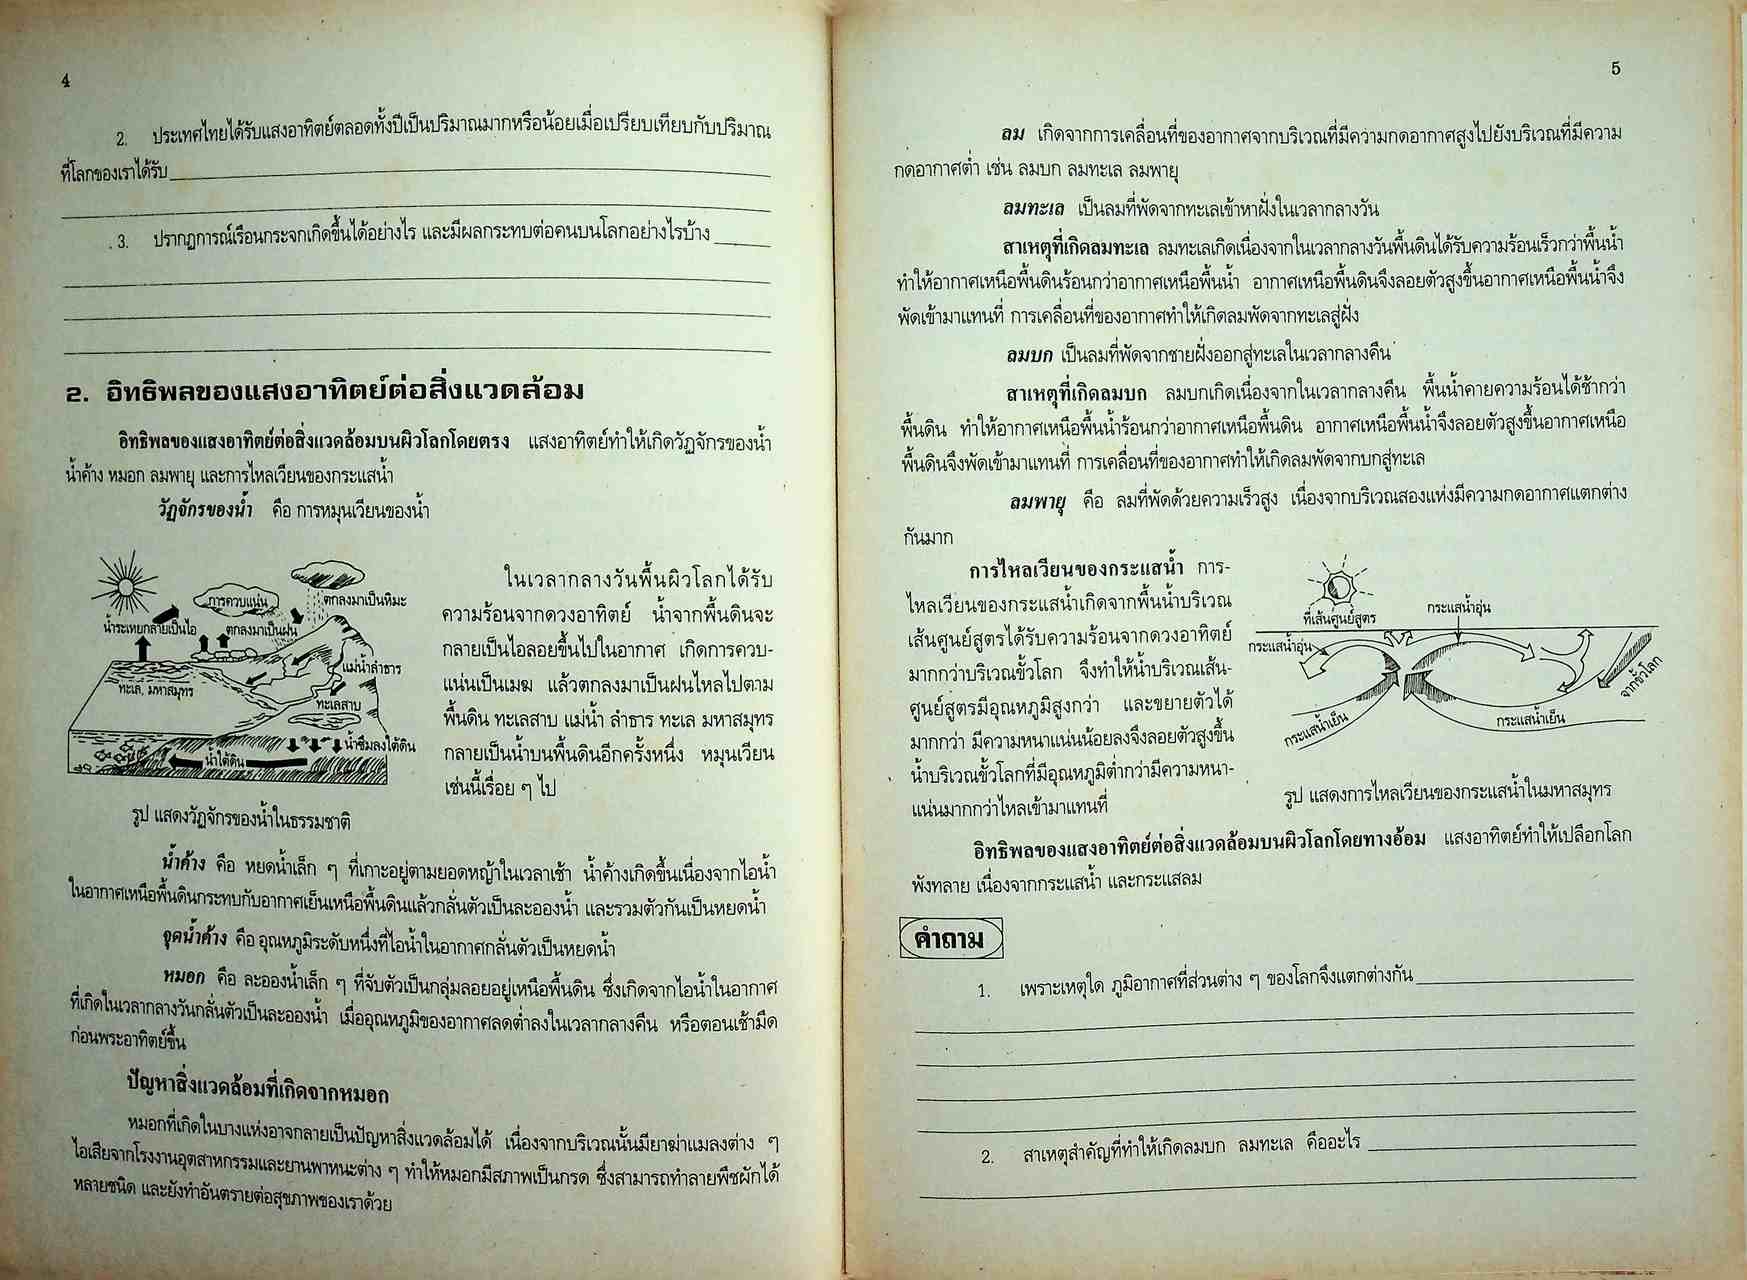 4
2. ประเทศไทยได้รับแสงอาทิตย์ตลอดทั้งปีเป็นปริมาณมากหรือน้อยเมื่อเปรียบเทียบกับปริมาณ
ที่โลกของเราได้รับ
3. ปรากฏการณ์เรือนกระจกเกิดขึ้นได้อย่างไร และมีผลกระทบต่อคนบนโลกอย่างไรบ้าง
2. อิทธิพลของแสงอาทิตย์ต่อสิ่งแวดล้อม
อิทธิพลของแสงอาทิตย์ต่อสิ่งแวดล้อมบนผิวโลกโดยตรง แสงอาทิตย์ทำให้เกิดวัฏจักรของน้ำ
น้ำค้าง หมอก ลมพายุ และการไหลเวียนของกระแสน้ำ
วัฏจักรของน้ำ คือ การหมุนเวียนของน้ำ
การควบแน่น
ตกลงมาเป็นหิมะ
น้ำระเหยกลายเป็นไอ
ตกลงมาเป็นฝน
แม่น้ำลำธาร
ทะเล, มหาสมุทร
ทะเลสาบ
น้ำซึมลงใต้ดิน
น้ำใต้ดิน
รูป แสดงวัฏจักรของน้ำในธรรมชาติ
ในเวลากลางวันพื้นผิวโลกได้รับ
ความร้อนจากดวงอาทิตย์ น้ำจากพื้นดินจะ
กลายเป็นไอลอยขึ้นไปในอากาศ เกิดการควบ-
แน่นเป็นเมฆ แล้วตกลงมาเป็นฝนไหลไปตาม
พื้นดิน ทะเลสาบ แม่น้ำ ลำธาร ทะเล มหาสมุทร
กลายเป็นน้ำบนพื้นดินอีกครั้งหนึ่ง หมุนเวียน
เช่นนี้เรื่อย ๆ ไป
น้ำค้าง คือ หยดน้ำเล็ก ๆ ที่เกาะอยู่ตามยอดหญ้าในเวลาเช้า น้ำค้างเกิดขึ้นเนื่องจากไอน้ำ
ในอากาศเหนือพื้นดินกระทบกับอากาศเย็นเหนือพื้นดินแล้วกลั่นตัวเป็นละอองน้ำ และรวมตัวกันเป็นหยดน้ำ
จุดน้ำค้าง คือ อุณหภูมิระดับหนึ่งที่ไอน้ำในอากาศกลั่นตัวเป็นหยดน้ำ
หมอก คือ ละอองน้ำเล็ก ๆ ที่จับตัวเป็นกลุ่มลอยอยู่เหนือพื้นดิน ซึ่งเกิดจากไอน้ำในอากาศ
ที่เกิดในเวลากลางวันกลั่นตัวเป็นละอองน้ำ เมื่ออุณหภูมิของอากาศลดต่ำลงในเวลากลางคืน หรือตอนเช้ามืด
ก่อนพระอาทิตย์ขึ้น
ปัญหาสิ่งแวดล้อมที่เกิดจากหมอก
หมอกที่เกิดในบางแห่งอาจกลายเป็นปัญหาสิ่งแวดล้อมได้ เนื่องจากบริเวณนั้นมียาฆ่าแมลงต่าง ๆ
ไอเสียจากโรงงานอุตสาหกรรมและยานพาหนะต่าง ๆ ทำให้หมอกมีสภาพเป็นกรด ซึ่งสามารถทำลายพืชผักได้
หลายชนิด และยังทำอันตรายต่อสุขภาพของเราด้วย
5
ลม เกิดจากการเคลื่อนที่ของอากาศจากบริเวณที่มีความกดอากาศสูงไปยังบริเวณที่มีความ
กดอากาศต่ำ เช่น ลมบก ลมทะเล ลมพายุ
ลมทะเล เป็นลมที่พัดจากทะเลเข้าหาฝั่งในเวลากลางวัน
สาเหตุที่เกิดลมทะเล ลมทะเลเกิดเนื่องจากในเวลากลางวันพื้นดินได้รับความร้อนเร็วกว่าพื้นน้ำ
ทำให้อากาศเหนือพื้นดินร้อนกว่าอากาศเหนือพื้นน้ำ อากาศเหนือพื้นดินจึงลอยตัวสูงขึ้นอากาศเหนือพื้นน้ำจึง
พัดเข้ามาแทนที่ การเคลื่อนที่ของอากาศทำให้เกิดลมพัดจากทะเลสู่ฝั่ง
ลมบก เป็นลมที่พัดจากชายฝั่งออกสู่ทะเลในเวลากลางคืน
สาเหตุที่เกิดลมบก ลมบกเกิดเนื่องจากในเวลากลางคืน พื้นน้ำคายความร้อนได้ช้ากว่า
พื้นดิน ทำให้อากาศเหนือพื้นน้ำร้อนกว่าอากาศเหนือพื้นดิน อากาศเหนือพื้นน้ำจึงลอยตัวสูงขึ้นอากาศเหนือ
พื้นดินจึงพัดเข้ามาแทนที่ การเคลื่อนที่ของอากาศทำให้เกิดลมพัดจากบกสู่ทะเล
ลมพายุ คือ ลมที่พัดด้วยความเร็วสูง เนื่องจากบริเวณสองแห่งมีความกดอากาศแตกต่าง
กันมาก
การไหลเวียนของกระแสน้ำ การ-
ไหลเวียนของกระแสน้ำเกิดจากพื้นน้ำบริเวณ
เส้นศูนย์สูตรได้รับความร้อนจากดวงอาทิตย์
มากกว่าบริเวณขั้วโลก จึงทำให้น้ำบริเวณเส้น-
ศูนย์สูตรมีอุณหภูมิสูงกว่า และขยายตัวได้
มากกว่า มีความหนาแน่นน้อยลงจึงลอยตัวสูงขึ้น
น้ำบริเวณขั้วโลกที่มีอุณหภูมิต่ำกว่ามีความหนา-
แน่นมากกว่าไหลเข้ามาแทนที่
ที่เส้นศูนย์สูตร
กระแสน้ำอุ่น
กระแสน้ำอุ่น
จากขั้วโลก
กระแสน้ำเย็น
กระแสน้ำเย็น
รูป แสดงการไหลเวียนของกระแสน้ำในมหาสมุทร
อิทธิพลของแสงอาทิตย์ต่อสิ่งแวดล้อมบนผิวโลกโดยทางอ้อม แสงอาทิตย์ทำให้เปลือกโลก
พังทลาย เนื่องจากกระแสน้ำ และกระแสลม
คำถาม
1. เพราะเหตุใด ภูมิอากาศที่ส่วนต่าง ๆ ของโลกจึงแตกต่างกัน
2. สาเหตุสำคัญที่ทำให้เกิดลมบก ลมทะเล คืออะไร